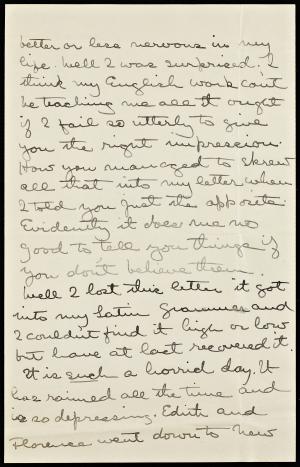 better or less nervous in my
life. Well I was surprised. I
think my English work can't
be teaching me all it ought
if I fail so utterly to give
you the right impression.
How you managed to skrew
all that into my letter when
I told you just the opposite.
Evidently it does me no
good to tell you things if
you don't believe them.
Well I lost this letter it got
into my Latin Grammer and
I couldn't find it high or low
but have at last recovered it.
It is such a horrid day. It
has rained all the time and
is so depressing. Edith and
Florence went down to New